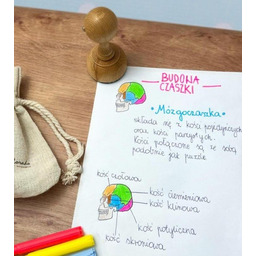 BUDOWA
CZASZKI
Mózgoczaszka
składa się z kości pojedynczych
oraz kości parzystych.
Kości połączone są ze sobą
podobnie jak puzzle
kość czołowa
kość ciemieniowa
kość klinowa
kość potyliczna
kość skroniowa